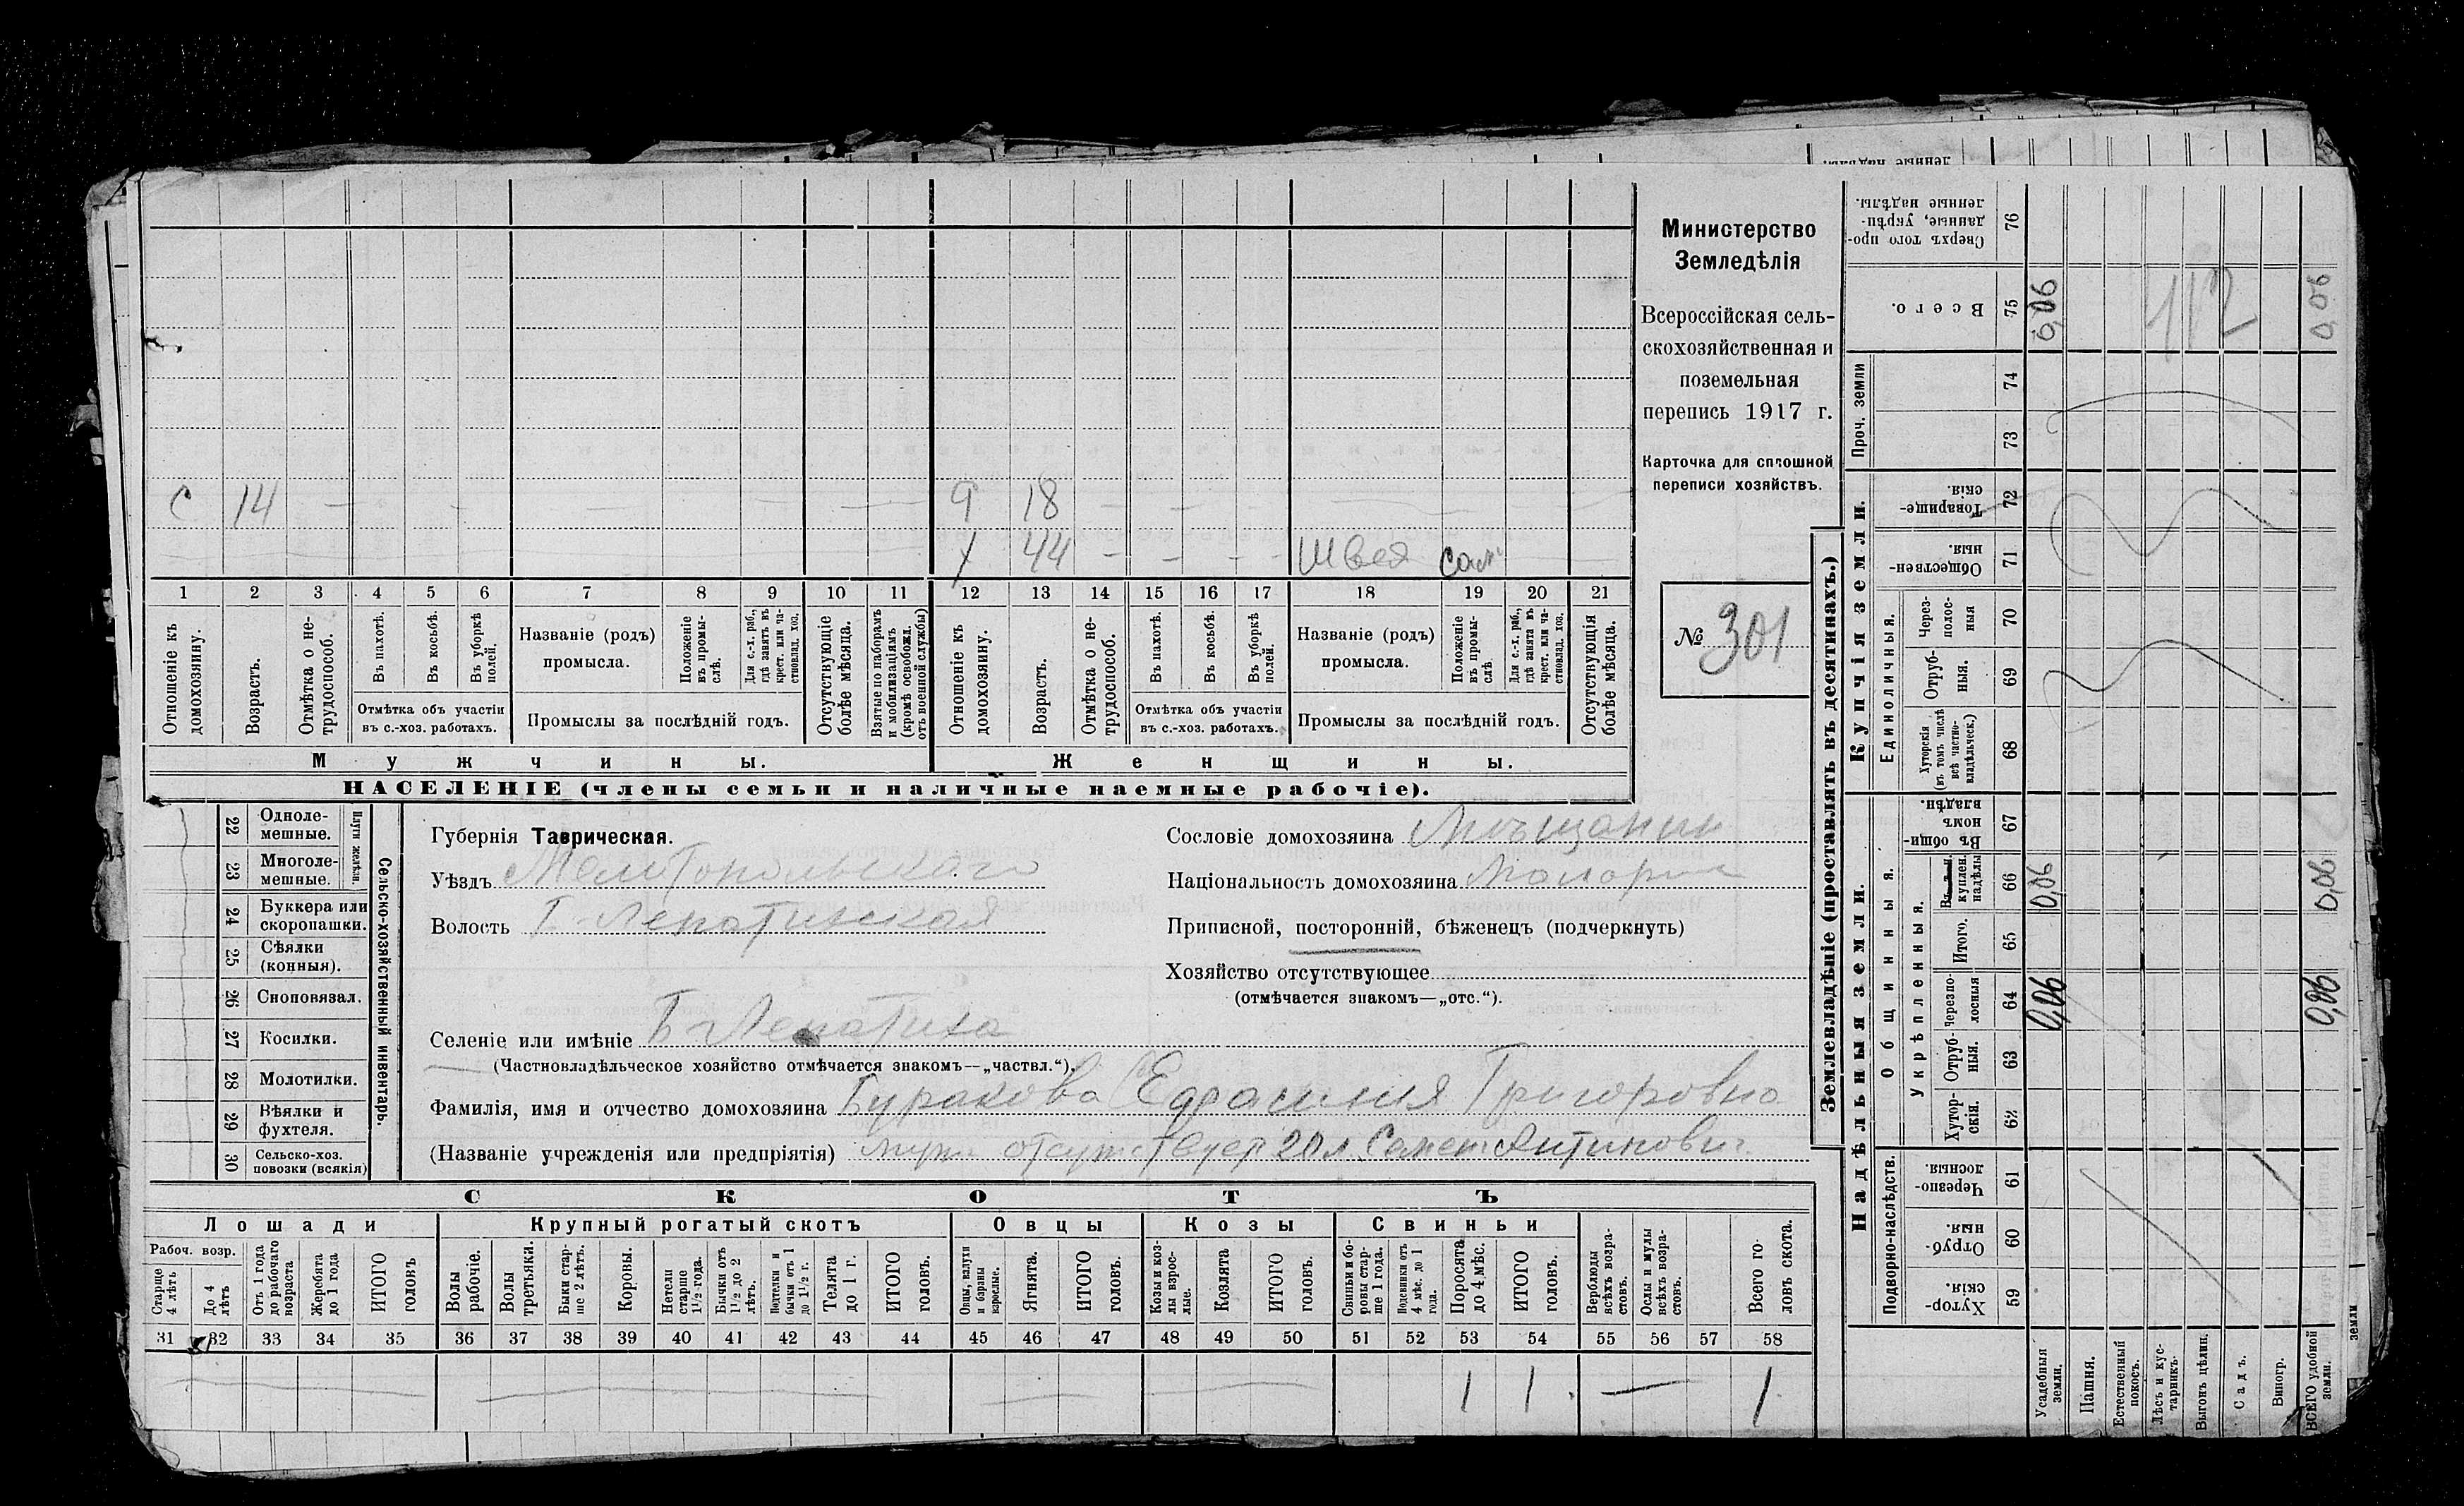 Министерство
Земледѣлія
Всероссійская сель-
скохозяйственная и
поземельная
перепись 1917 г.
Карточка для сплошной
переписи хозяйствъ.
№ 301
С 14 — — 9 18 — — —
х 44 — — — — швея сам
1 2 3 4 5 6 7 8 9 10 11 12 13 14 15 16 17 18 19 20 21
Отношеніе къ домохозяину.
Возрастъ.
Отмѣтка о не-трудоспособ.
Въ пахотѣ.
Въ косьбѣ.
Въ уборкѣ полей.
Отмѣтка объ участіи въ с.-хоз. работахъ.
Названіе (родъ) промысла.
Положеніе въ промы-слѣ.
Для с.-х. раб., гдѣ занятъ въ крест. или ча-стновлад. хоз.
Промыслы за послѣдній годъ.
Отсутствующіе болѣе мѣсяца.
Взятые по наборамъ и мобилизаціямъ (кромѣ освобожд. отъ военной службы)
Отношеніе къ домохозяину.
Возрастъ.
Отмѣтка о не-трудоспособ.
Въ пахотѣ.
Въ косьбѣ.
Въ уборкѣ полей.
Отмѣтка объ участіи въ с.-хоз. работахъ.
Названіе (родъ) промысла.
Положеніе въ промы-слѣ.
Для с.-х. раб., гдѣ занята въ крест. или ча-стновлад. хоз.
Промыслы за послѣдній годъ.
Отсутствующія болѣе мѣсяца.
Мужчины.
Женщины.
НАСЕЛЕНІЕ (члены семьи и наличные наемные рабочіе).
Сельско-хозяйственный инвентарь.
Плуги желѣзн.
22 Однолемешные.
23 Многолемешные.
24 Буккера или скоропашки.
25 Сѣялки (конныя).
26 Сноповязал.
27 Косилки.
28 Молотилки.
29 Вѣялки и фухтеля.
30 Сельско-хоз. повозки (всякія)
Губернія Таврическая.
Уѣздъ Мелитопольскаго
Волость Б Лепатихская
Селеніе или имѣніе Б Лепатиха
(Частновладѣльческое хозяйство отмѣчается знакомъ—„частвл.“).
Фамилія, имя и отчество домохозяина Буракова Ефросинія Григоровна
(Названіе учрежденія или предпріятія) мужъ отсутствует 20 л.
Сословіе домохозяина Мѣщанин
Національность домохозяина Малорос
Приписной, посторонній, бѣженецъ (подчеркнуть)
Хозяйство отсутствующее
(отмѣчается знакомъ—„отс.“).
СКОТЪ
Лошади
Крупный рогатый скотъ
Овцы
Козы
Свиньи
Рабоч. возр.
Старше 4 лѣтъ
До 4 лѣтъ
Отъ 1 года до рабочаго возраста
Жеребята до 1 года
ИТОГО головъ
Волы рабочіе.
Волы третьяки.
Быки стар-ше 2 лѣтъ.
Коровы.
Нетели старше 1½ года.
Бычки отъ 1½ до 2 лѣтъ.
Подтелки и бычки отъ 1 до 1½ г.
Телята до 1 г.
ИТОГО головъ.
Овцы, валухи и бараны взрослые.
Ягнята.
ИТОГО головъ.
Козы и коз-лы взрос-лые.
Козлята
ИТОГО головъ.
Свиньи и бо-ровы стар-ше 1 года.
Подсвинки отъ 4 мѣс. до 1 года.
Поросята до 4 мѣс.
ИТОГО головъ.
Верблюды всѣхъ возра-стовъ.
Ослы и мулы всѣхъ возра-стовъ.
Всего го-ловъ скота.
31 32 33 34 35 36 37 38 39 40 41 42 43 44 45 46 47 48 49 50 51 52 53 54 55 56 57 58
1 1 — 1
Землевладѣніе (проставлять въ десятинахъ.)
Сверхъ того про-данные, укрѣп-ленные надѣлы. 76
Всего. 75 0,06 112 0,06
Проч. земли 74 73
Купчія земли.
Товарище-скія. 72
Обществен-ныя. 71
Единоличныя.
Через-полос-ныя 70
Отруб-ныя. 69
Хуторскія (въ томъ числѣ всѣ частно-владѣльческ.) 68
Надѣльныя земли.
Общинныя.
Въ общин-номъ владѣн. 67
куплен. надѣлы 66 0,06 0,06
Укрѣпленныя.
Итого. 65
Черезпо-лосныя 64 0,06 0,06
Отруб-ныя. 63
Хутор-скія. 62
Подворно-наслѣдств.
Черезпо-лосныя. 61
Отруб-ныя. 60
Хутор-скія. 59
Усадебныя земли.
Пашня.
Естественный покосъ.
Лѣсъ и кус-тарникъ.
Выгонъ цѣлин.
Садъ.
Виногр.
ВСЕГО удобной земли.
земли